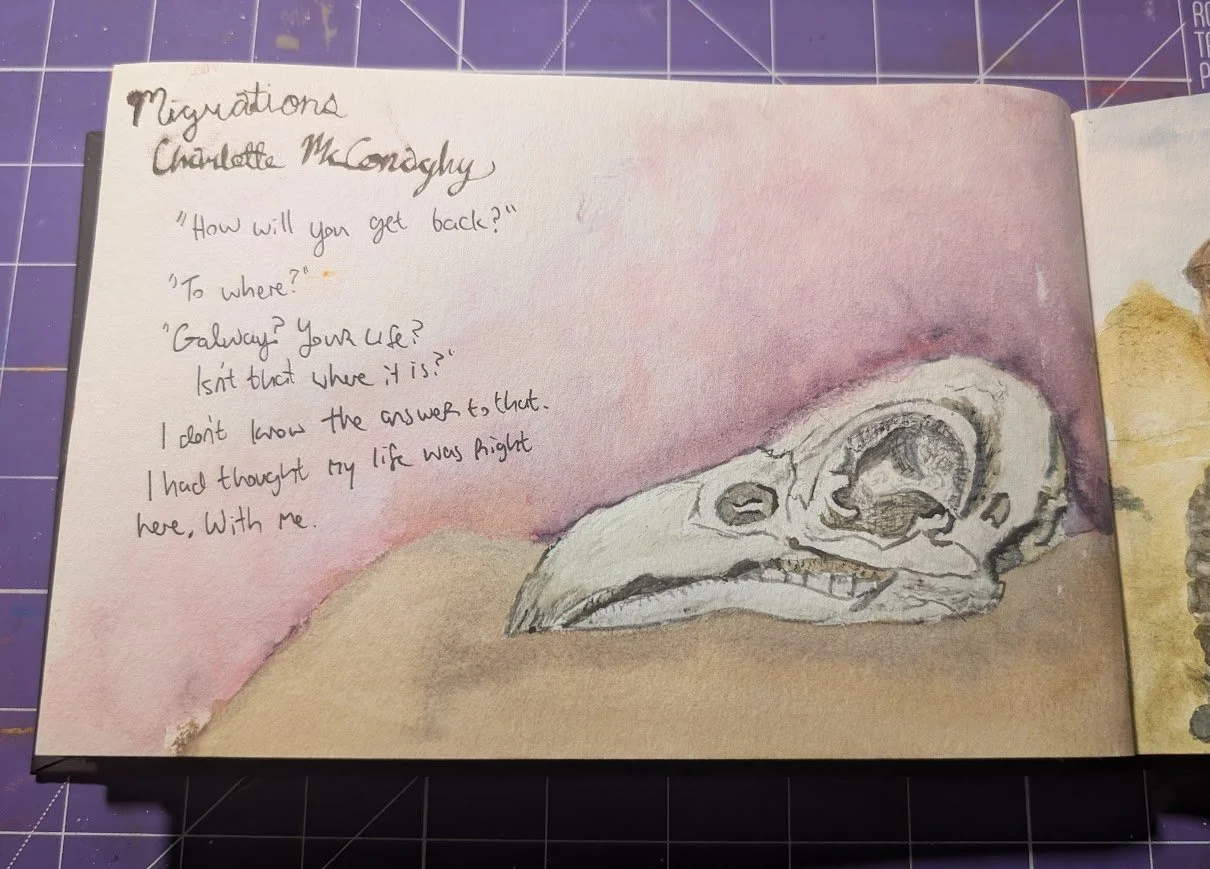 Migrations
Charlotte McConaghy
"How will you get back?"
"To where?"
"Galway? Your life?
Isn't that where it is?"
I don't know the answer to that.
I had thought my life was right
here, With me.